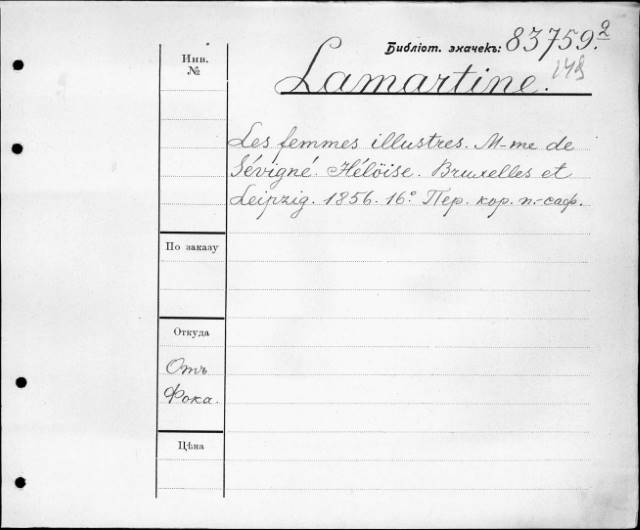 Библіот. значекъ: 83759.2
148
Инв. №
Lamartine.
Les femmes illustres. M-me de
Sévigné. Hélöise. Bruxelles et
Leipzig. 1856. 16° Пер. кор. п.-саф.
По заказу
Откуда
Отъ
Фока.
Цѣна